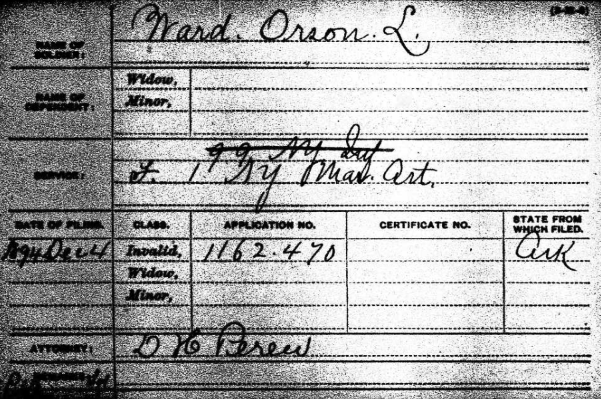 NAME OF SOLDIER: Ward. Orson. L.
NAME OF DEPENDENT: Widow,
Minor,
99 NY Inf
SERVICE: F. 1 NY Mar. Art.
DATE OF FILING. CLASS. APPLICATION NO. CERTIFICATE NO. STATE FROM WHICH FILED.
1894 Dec 4 Invalid, 1162.470 Ark
Widow,
Minor,
ATTORNEY: D H